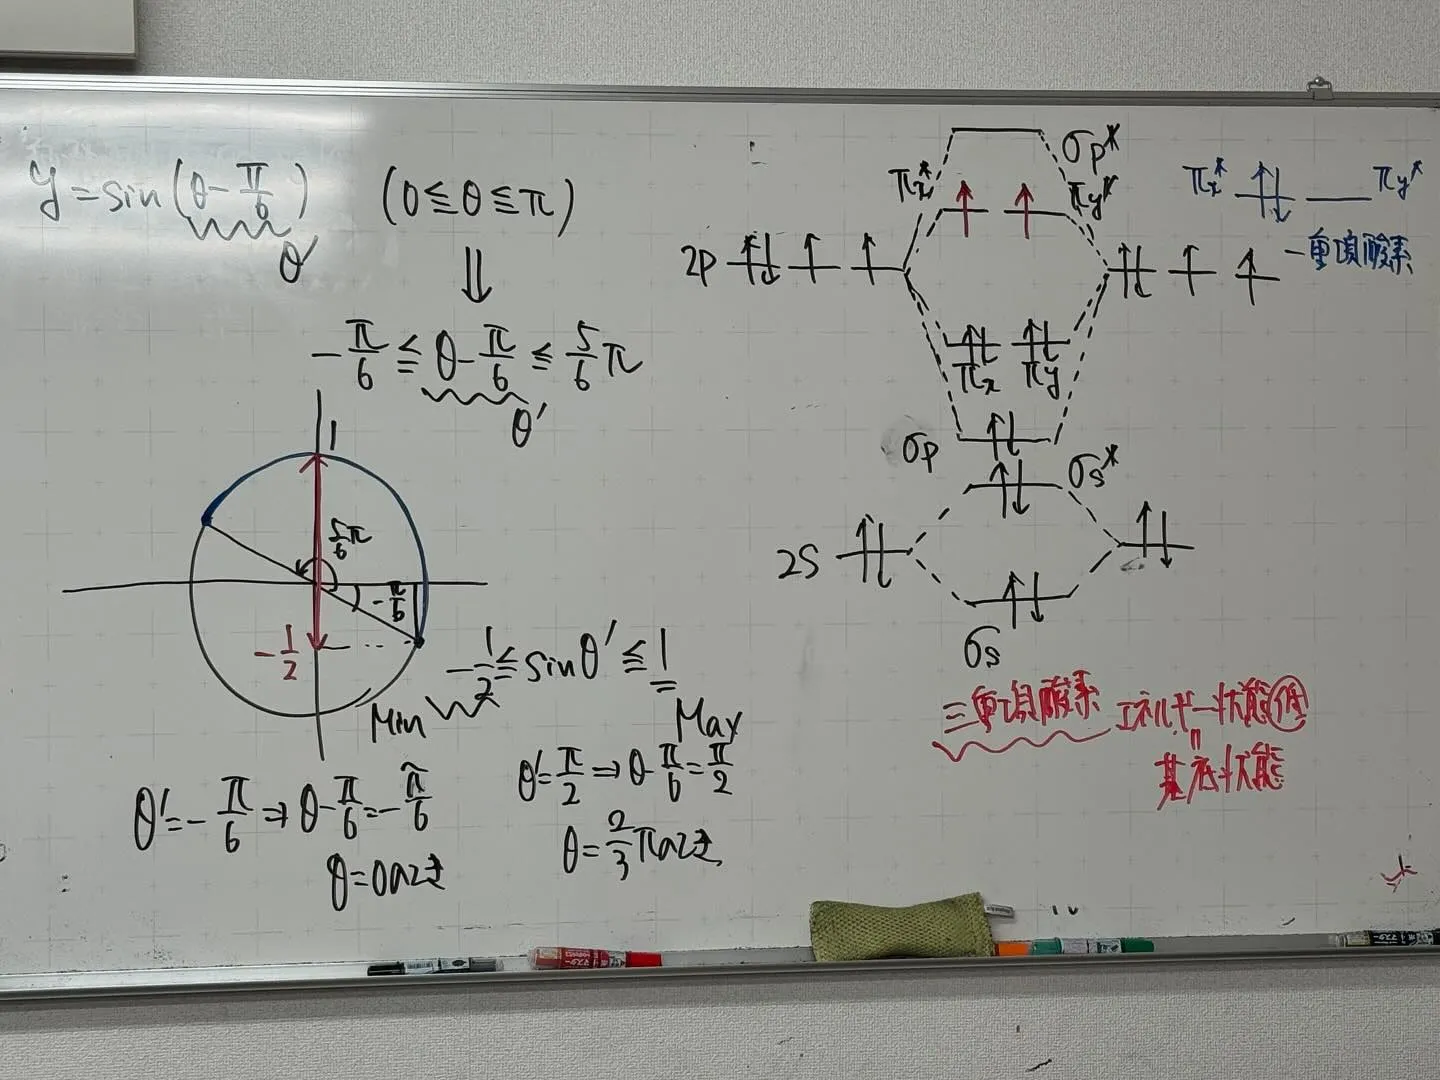 y = sin(θ - π/6) (0 ≦ θ ≦ π)
θ'
⇓
-π/6 ≦ θ - π/6 ≦ 5/6 π
θ'
1
5/6 π
-π/6
-1/2
-1/2 ≦ sinθ' ≦ 1
Min Max
θ' = -π/6 ⇒ θ - π/6 = -π/6
θ = 0のとき
θ' = π/2 ⇒ θ - π/6 = π/2
θ = 2/3 πのとき
σp*
πx* πy*
2P
πx πy
σp
σs*
2S
σs
πx* πy*
一重項酸素
三重項酸素 エネルギー状態低
=
基底状態